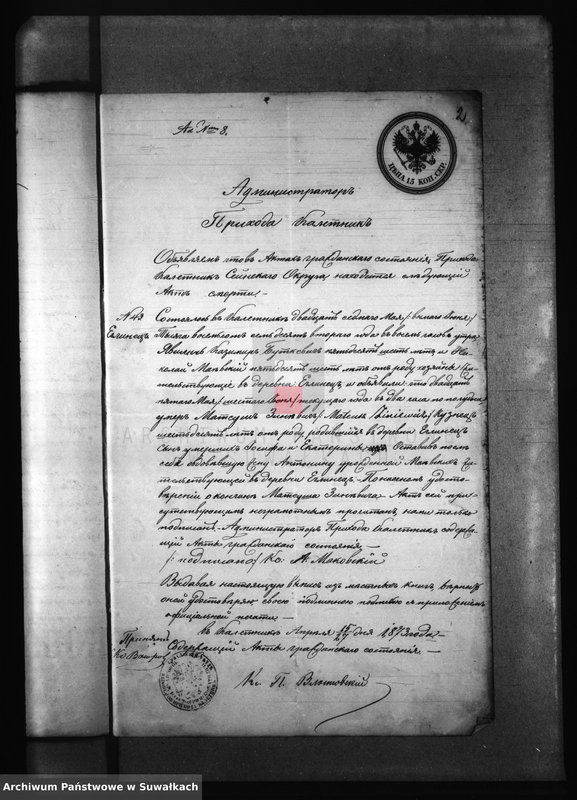 Ad Num 8.
2
ЦѢНА 15 КОП. СЕР.
Администраторъ
Прихода Калетникъ
Объявляемъ что въ Актахъ гражданскаго состоянія Прихода
Калетникъ Сейнскаго Округа, находится слѣдующій
Актъ смерти.
№ 42
Еглинецъ
Состоялось въ Калетникъ двадцать седьмаго Мая /
Тысяча восемьсотъ семьдесятъ втораго года въ восемь часовъ утра
Явились Казимиръ Буткевичъ пятьдесятъ шесть лѣтъ и
пятьдесятъ шесть лѣтъ отъ роду хозяйна
въ деревнѣ Еглинецъ и объявили что двадцать
пятаго Мая / шестаго Іюня / текущаго года въ два часа по полудни
умеръ Матеушъ Зинкевичъ / Mateusz Zinkiewicz /
шестьдесятъ лѣтъ отъ роду родившійся въ деревнѣ Еглинецъ
сынъ умершихъ Іосифа и Екатерины Оставивъ послѣ
себя овдовѣвшую жену Антонину урожденную
въ деревнѣ Еглинецъ. По
о кончинѣ Матеуша Зинкевича Актъ сей
неграмотнымъ прочитанъ, нами только
подписанъ. Администраторъ Прихода Калетникъ
Акты гражданскаго состоянія
/ подписано / Кс. А. Маковскій
Выдавая настоящую выпись изъ мѣстныхъ книгъ, вѣрность
оной удостовѣряю своею подписью съ приложеніемъ
официальной печати.
въ Калетникъ Апрѣля дня 1873 года.
Содержащій Акты гражданскаго состоянія
Кс. П.
Принялъ
Archiwum Państwowe w Suwałkach